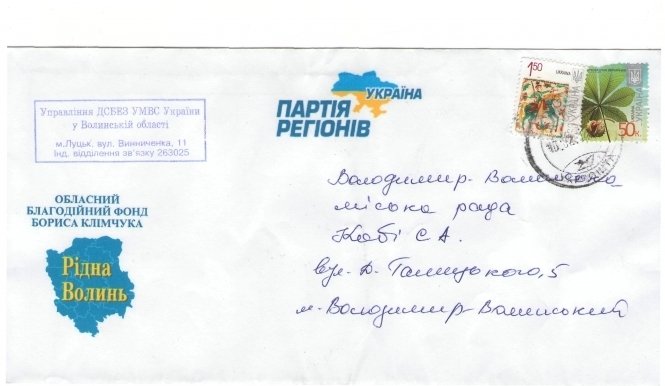 Управління ДСБЕЗ УМВС України
у Волинській області
м.Луцьк. вул. Винниченка, 11
Інд. відділення зв'язку 263025
УКРАЇНА
ПАРТІЯ
РЕГІОНІВ
1.50
УКРАЇНА
УКРАЇНА
50к.
ОБЛАСНИЙ
БЛАГОДІЙНИЙ ФОНД
БОРИСА КЛІМЧУКА
Рідна
Волинь
Володимир-Волинська
міська рада
Кобі С.А.
вул. Д. Галицького, 5
м. Володимир-Волинський